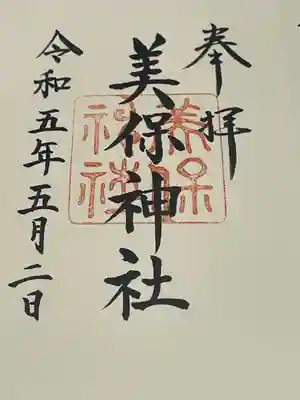 奉拝
美保神社
美保
神社
令和五年五月二日